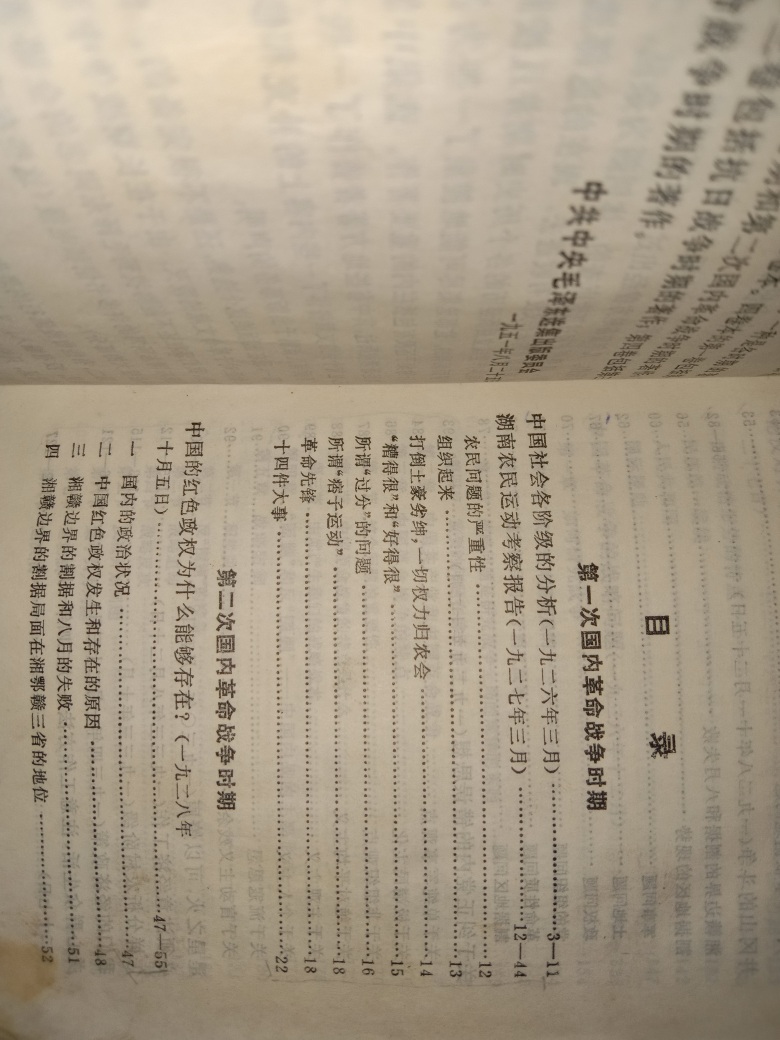 二卷包括抗日战争时期的著作,
争时期的著作。
中共中央毛泽东选集出版委员会
一九五一年八月二十五日
目 录
第一次国内革命战争时期
中国社会各阶级的分析(一九二六年三月)……3—11
湖南农民运动考察报告(一九二七年三月)……12—44
农民问题的严重性……12
组织起来……13
打倒土豪劣绅,一切权力归农会……14
“糟得很”和“好得很”……15
所谓“过分”的问题……16
所谓“痞子运动”……18
革命先锋……18
十四件大事……22
第二次国内革命战争时期
中国的红色政权为什么能够存在?(一九二八年
十月五日)……47—55
一 国内的政治状况……47
二 中国红色政权发生和存在的原因……48
三 湘赣边界的割据和八月的失败……51
四 湘赣边界的割据局面在湘鄂赣三省的地位……52